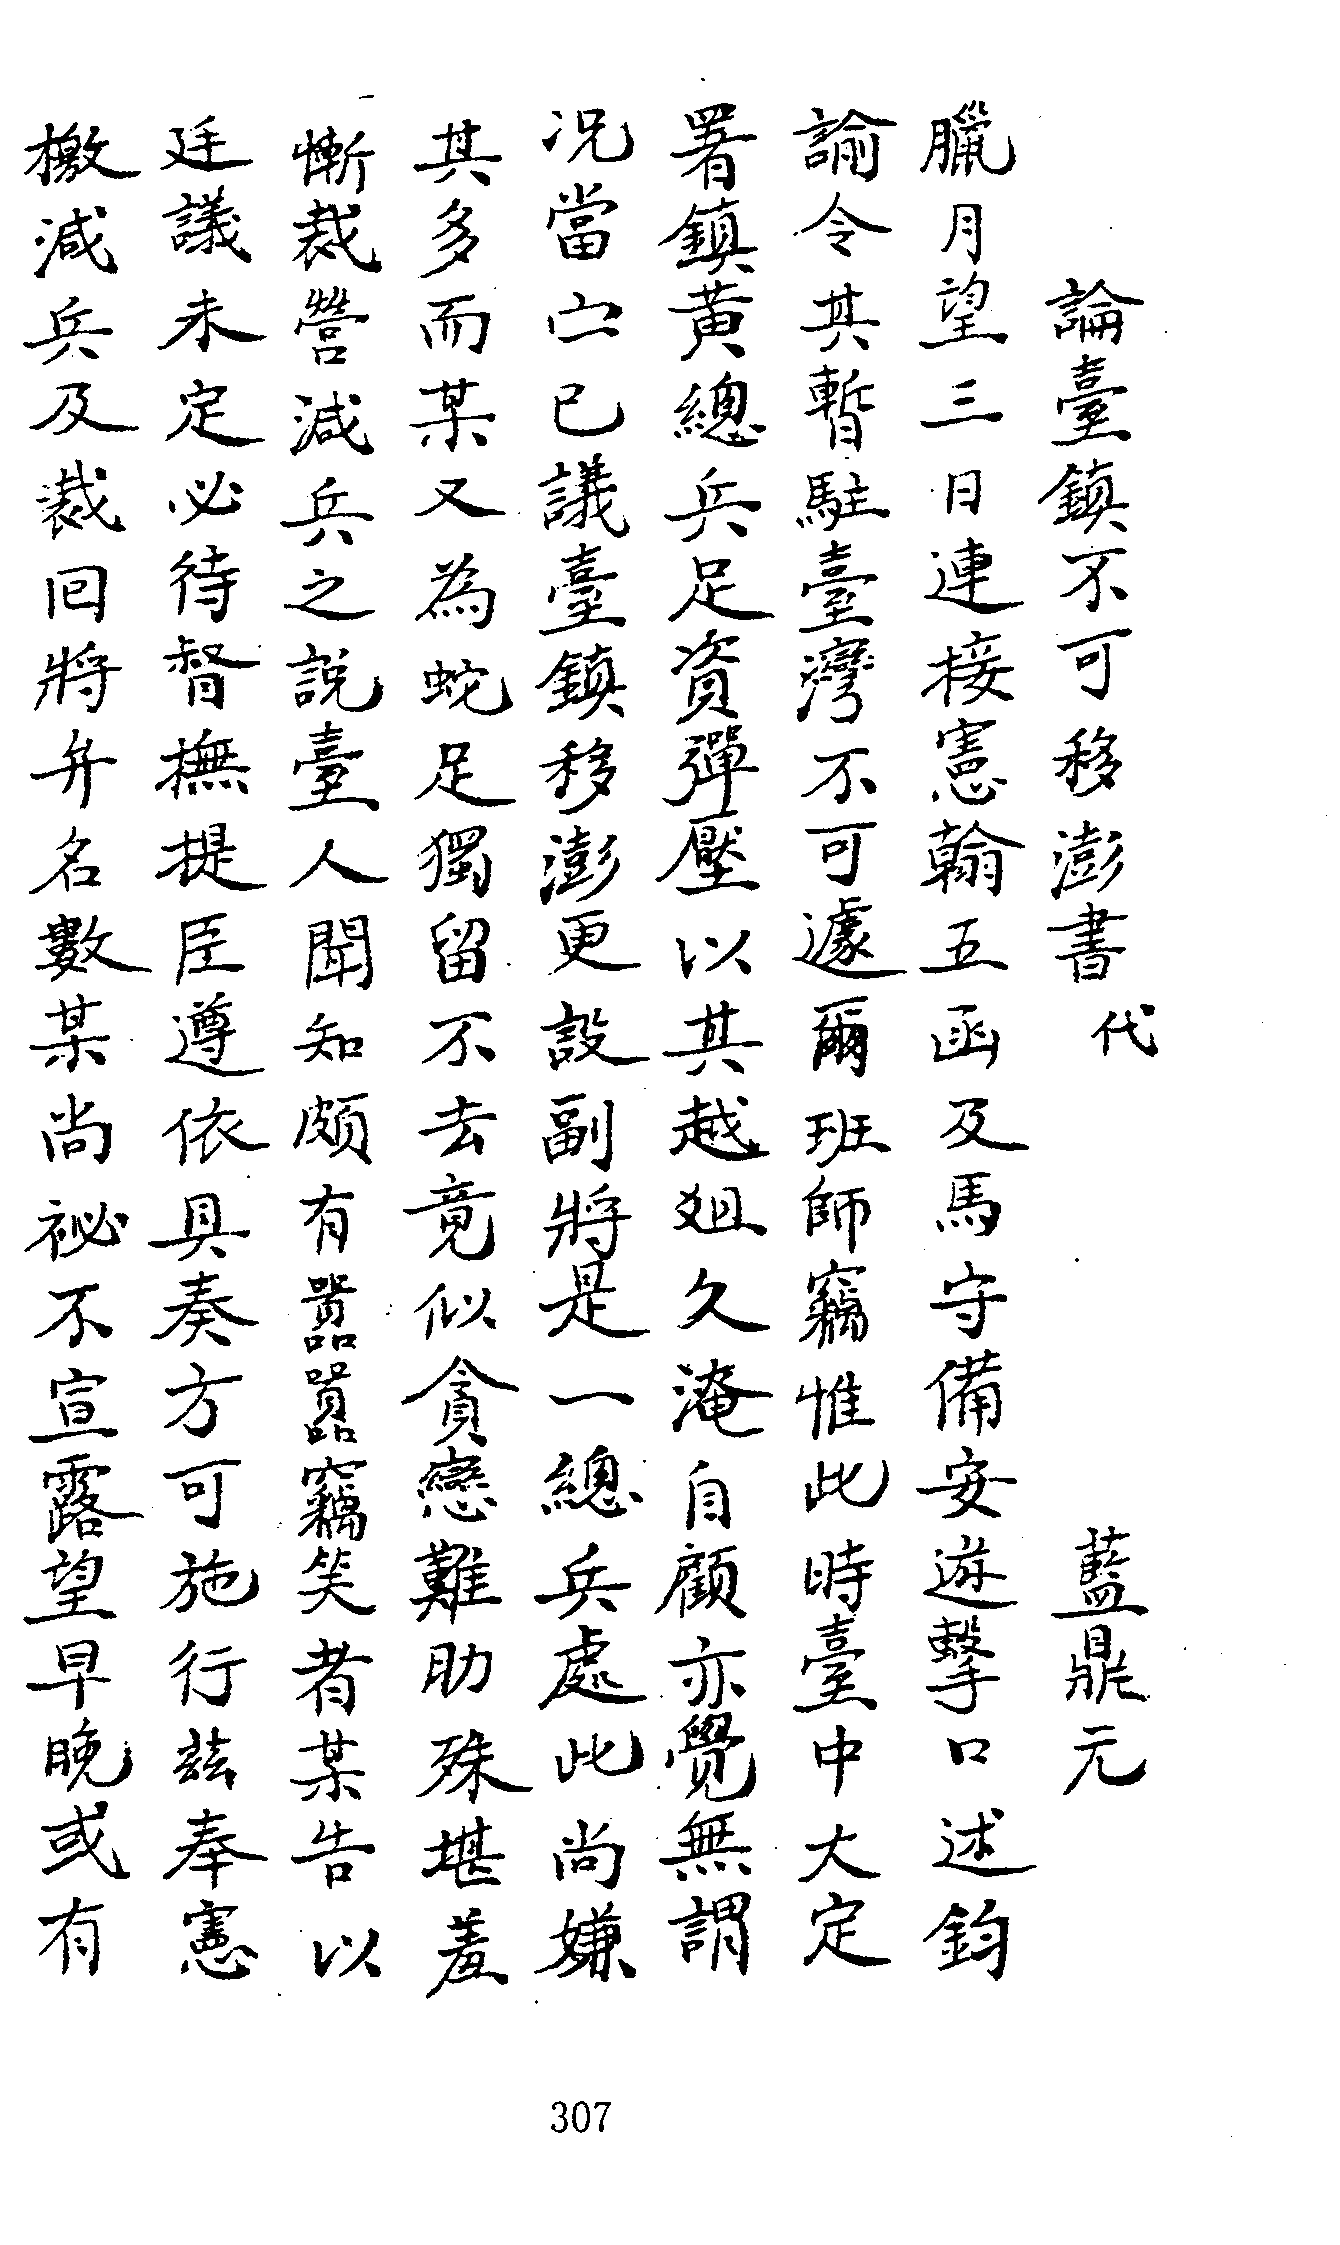 論臺鎮不可移澎書 代 藍鼎元
臘月望三日連接憲翰五函及馬守備安遊擊口述鈞
諭令其暫駐臺灣不可遽爾班師竊惟此時臺中大定
署鎮黃總兵足資彈壓以其越俎久淹自顧亦覺無謂
況當亡已議臺鎮移澎更設副將是一總兵處此尚嫌
其多而某又為蛇足獨留不去竟似貪戀難助殊堪羞
慚裁營減兵之說臺人聞知頗有囂囂竊笑者某告以
廷議未定必待督撫提臣遵依具奏方可施行茲奉憲
檄減兵及裁回將弁名數某尚祕不宣露望早晚或有
307